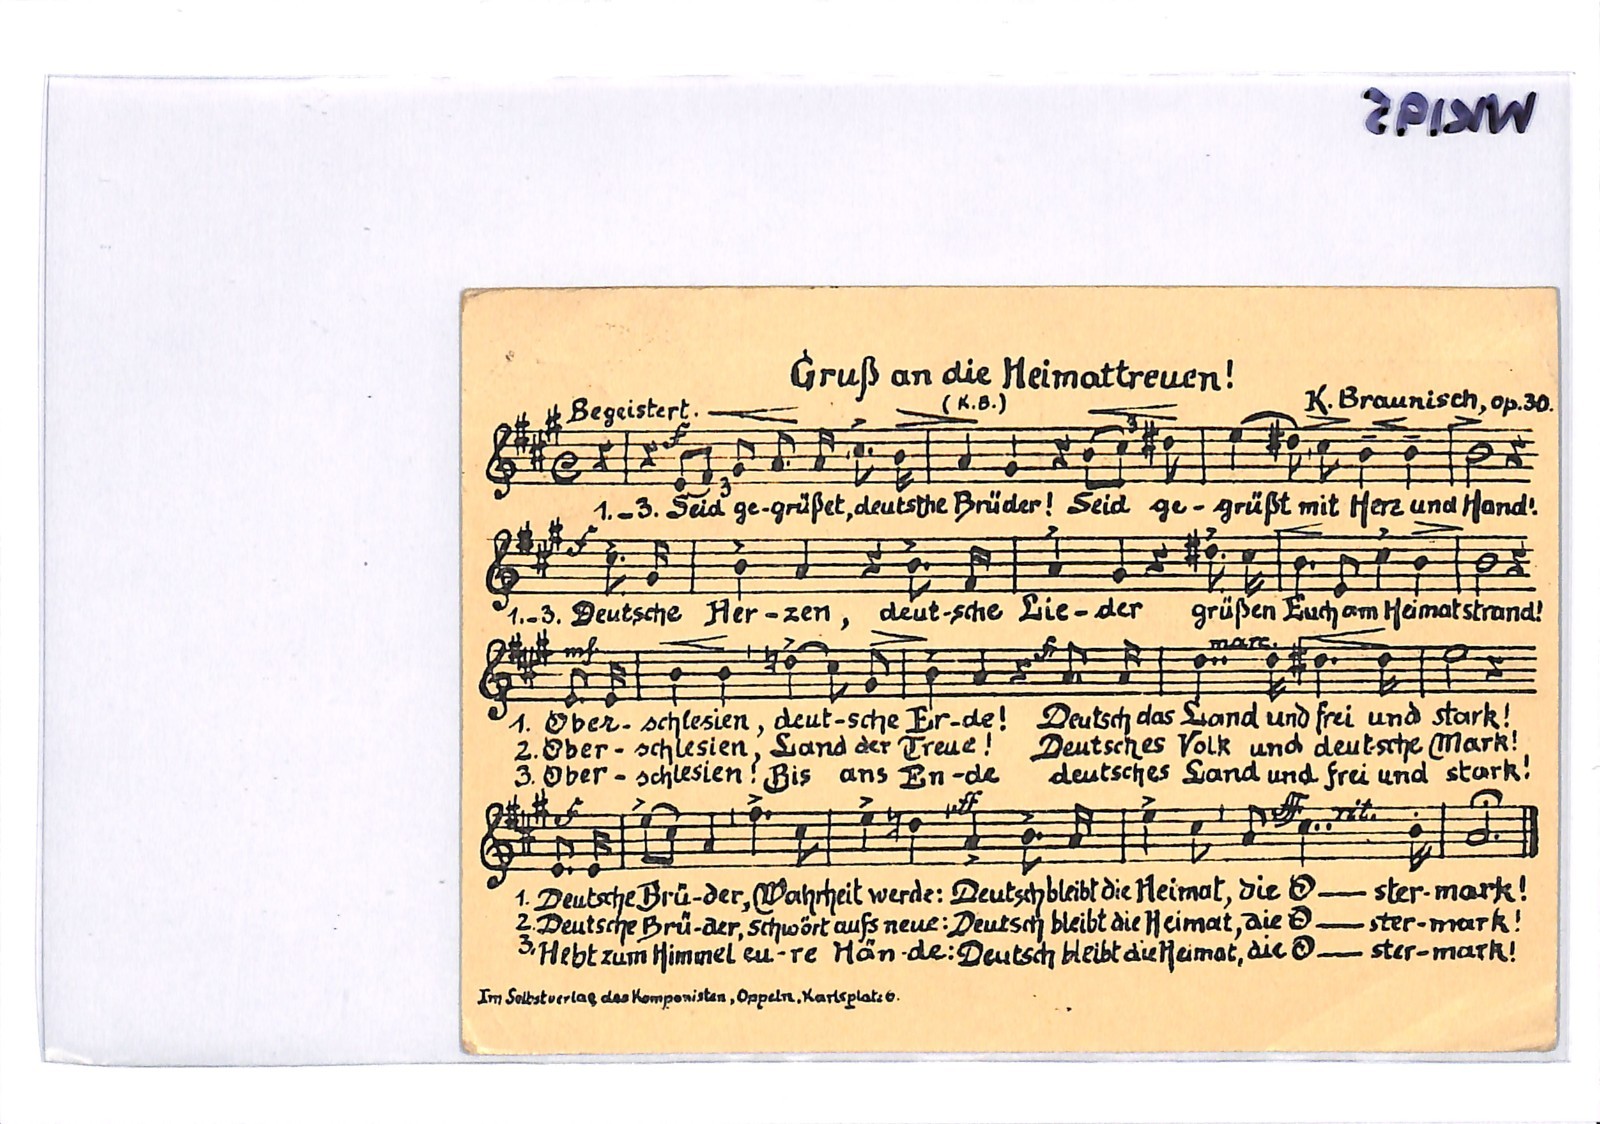 WK195
Gruß an die Heimattreuen!
(K.B.)
Begeistert.
K. Braunisch, op.30.
f
3
3
1.–3. Seid ge-grüßet, deutsche Brüder! Seid ge-grüßt mit Herz und Hand!
f
1.–3. Deutsche Her-zen, deut-sche Lie-der grüßen Euch am Heimatstrand!
mf f marc.
1. Ober-schlesien, deut-sche Er-de! Deutsch das Land und frei und stark!
2. Ober-schlesien, Land der Treue! Deutsches Volk und deutsche Mark!
3. Ober-schlesien! Bis ans En-de deutsches Land und frei und stark!
f ff ff rit.
1. Deutsche Brü-der, Wahrheit werde: Deutsch bleibt die Heimat, die O–ster-mark!
2. Deutsche Brü-der, schwört aufs neue: Deutsch bleibt die Heimat, die O–ster-mark!
3. Hebt zum Himmel eu-re Hän-de: Deutsch bleibt die Heimat, die O–ster-mark!
Im Selbstverlag des Komponisten, Oppeln, Karlsplatz 6.